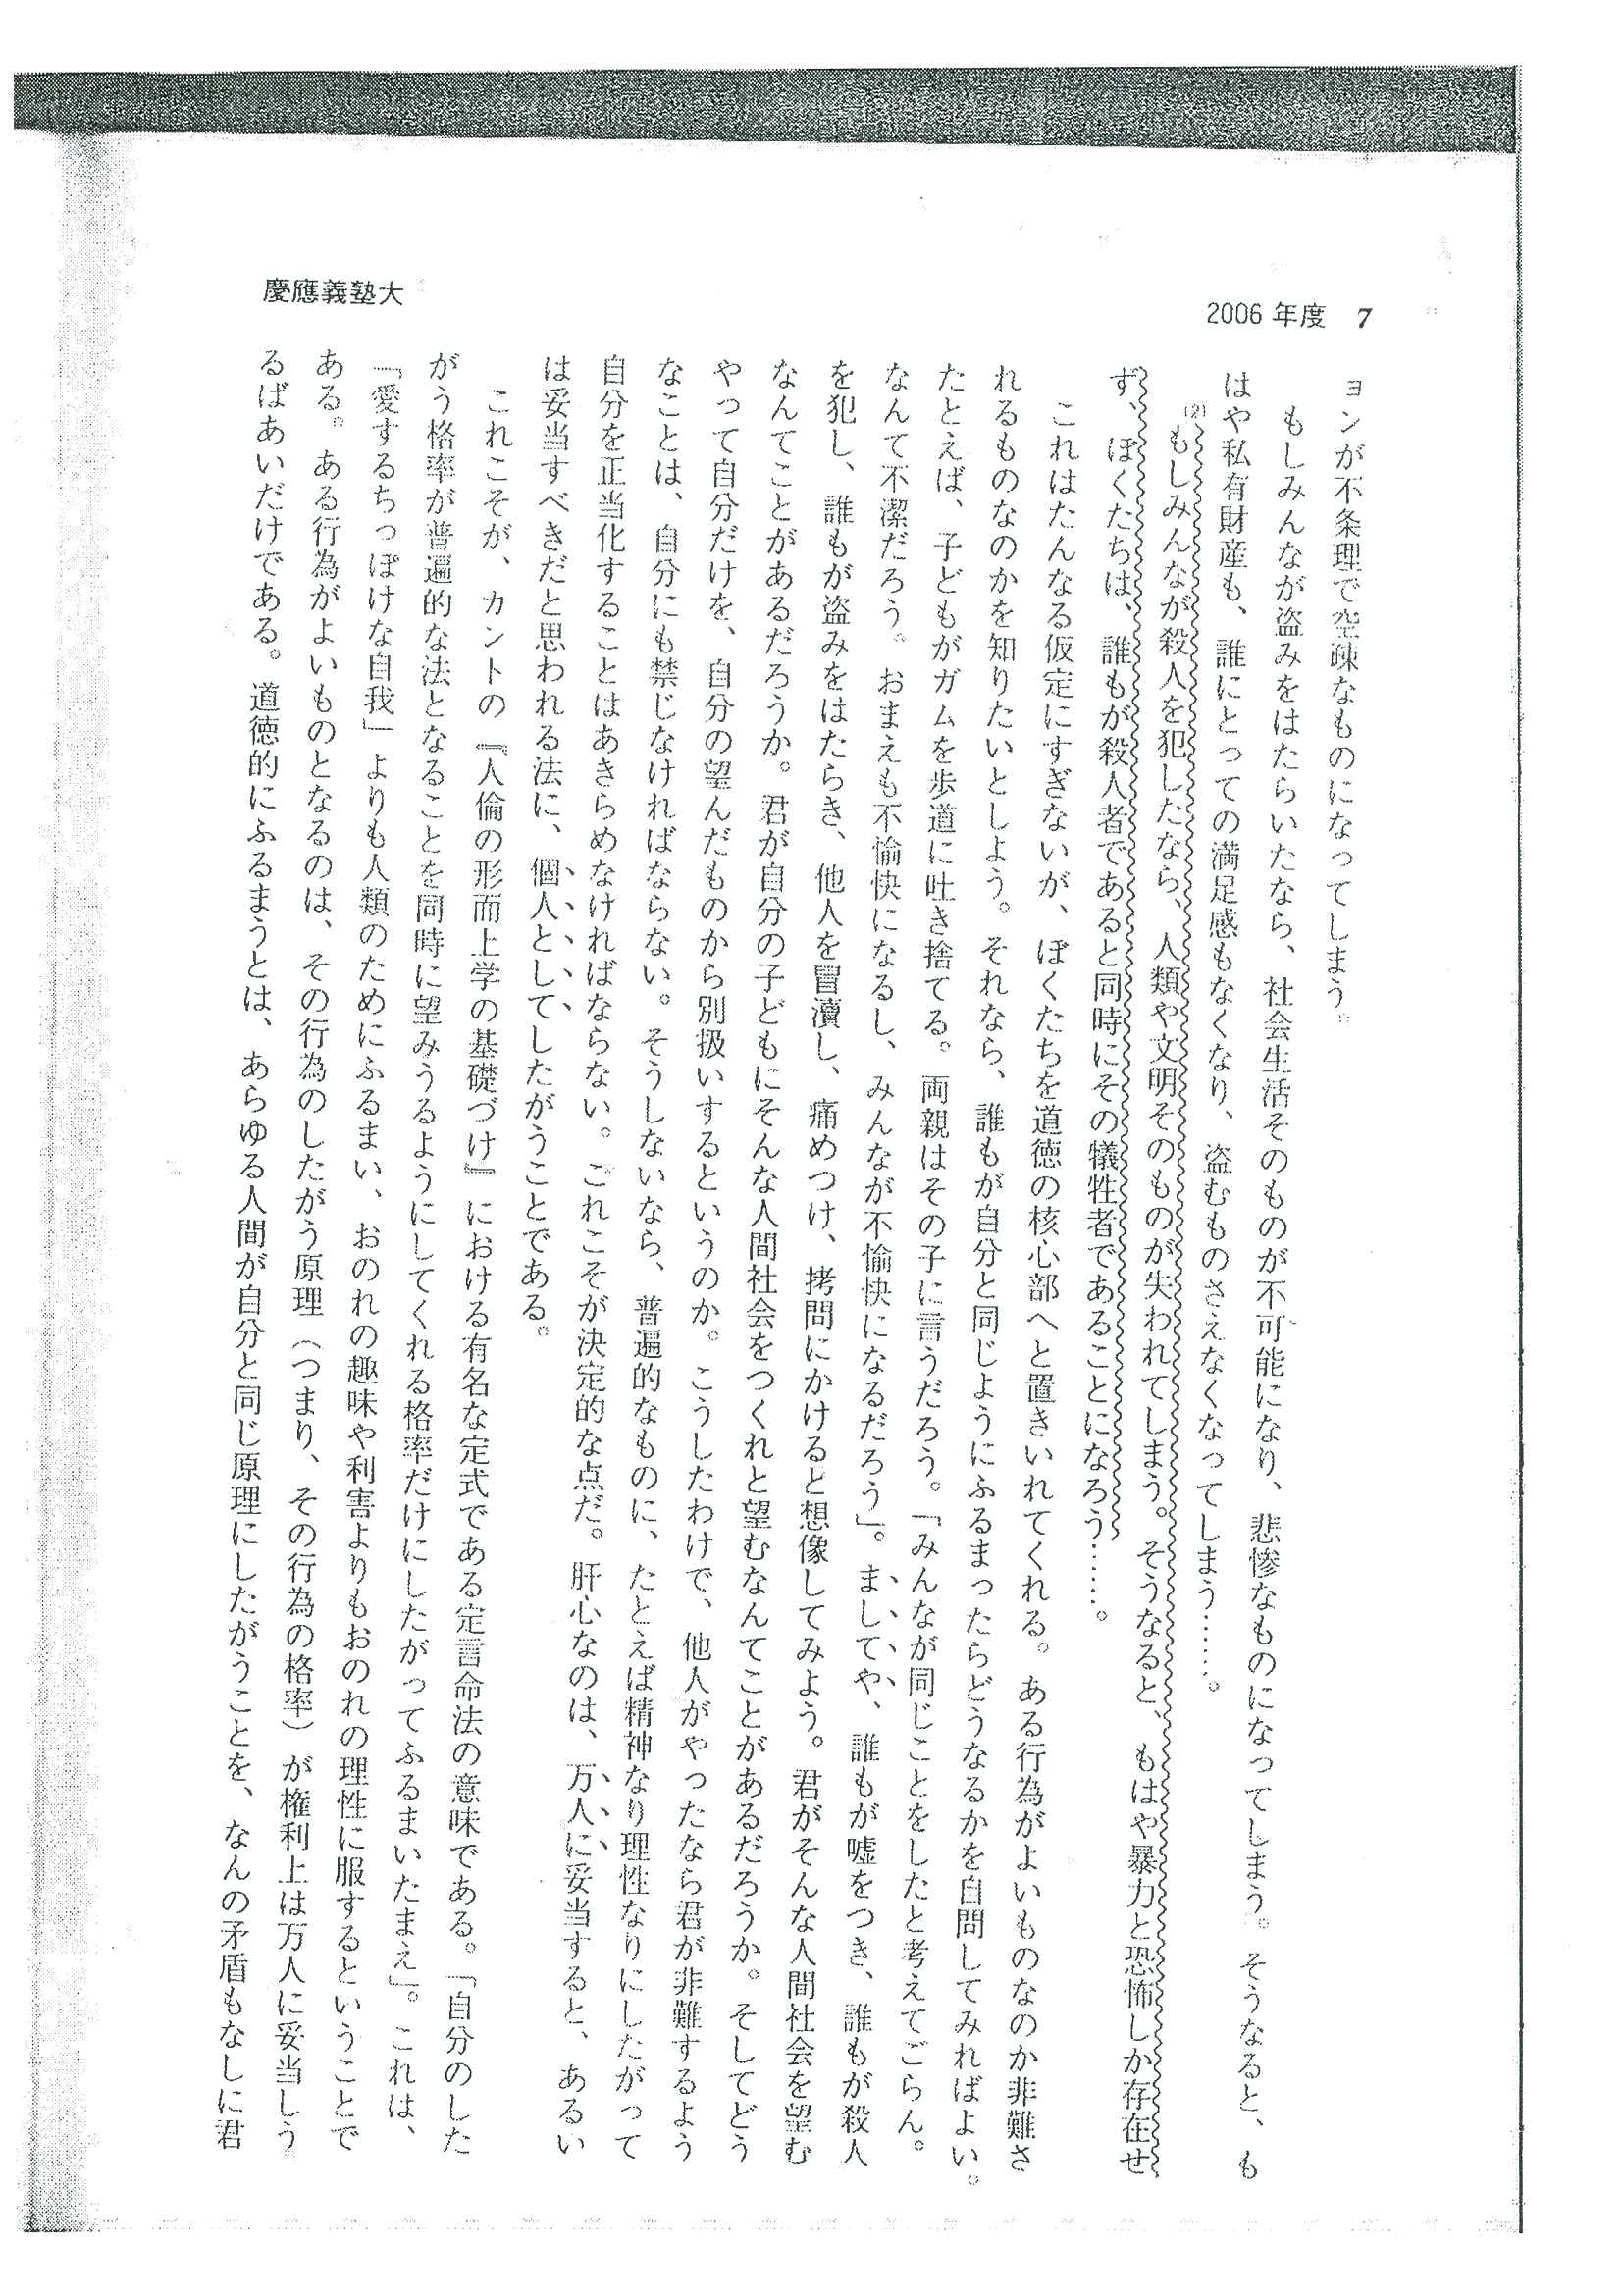 慶應義塾大
2006 年度 7
ョンが不条理で空疎なものになってしまう。
もしみんなが盗みをはたらいたなら、社会生活そのものが不可能になり、悲惨なものになってしまう。そうなると、も
はや私有財産も、誰にとっての満足感もなくなり、盗むものさえなくなってしまう……。
(2)もしみんなが殺人を犯したなら、人類や文明そのものが失われてしまう。そうなると、もはや暴力と恐怖しか存在せ
ず、ぼくたちは、誰もが殺人者であると同時にその犠牲者であることになろう……。
これはたんなる仮定にすぎないが、ぼくたちを道徳の核心部へと置きいれてくれる。ある行為がよいものなのか非難さ
れるものなのかを知りたいとしよう。それなら、誰もが自分と同じようにふるまったらどうなるかを自問してみればよい。
たとえば、子どもがガムを歩道に吐き捨てる。両親はその子に言うだろう。「みんなが同じことをしたと考えてごらん。
なんて不潔だろう。おまえも不愉快になるし、みんなが不愉快になるだろう」。ましてや、誰もが嘘をつき、誰もが殺人
を犯し、誰もが盗みをはたらき、他人を冒瀆し、痛めつけ、拷問にかけると想像してみよう。君がそんな人間社会を望む
なんてことがあるだろうか。君が自分の子どもにそんな人間社会をつくれと望むなんてことがあるだろうか。そしてどう
やって自分だけを、自分の望んだものから別扱いするというのか。こうしたわけで、他人がやったなら君が非難するよう
なことは、自分にも禁じなければならない。そうしないなら、普遍的なものに、たとえば精神なり理性なりにしたがって
自分を正当化することはあきらめなければならない。これこそが決定的な点だ。肝心なのは、万人に妥当すると、あるい
は妥当すべきだと思われる法に、個人としてしたがうことである。
これこそが、カントの『人倫の形而上学の基礎づけ』における有名な定式である定言命法の意味である。「自分のした
がう格率が普遍的な法となることを同時に望みうるようにしてくれる格率だけにしたがってふるまいたまえ」。これは、
「愛するちっぽけな自我」よりも人類のためにふるまい、おのれの趣味や利害よりもおのれの理性に服するということで
ある。ある行為がよいものとなるのは、その行為のしたがう原理（つまり、その行為の格率）が権利上は万人に妥当しう
るばあいだけである。道徳的にふるまうとは、あらゆる人間が自分と同じ原理にしたがうことを、なんの矛盾もなしに君